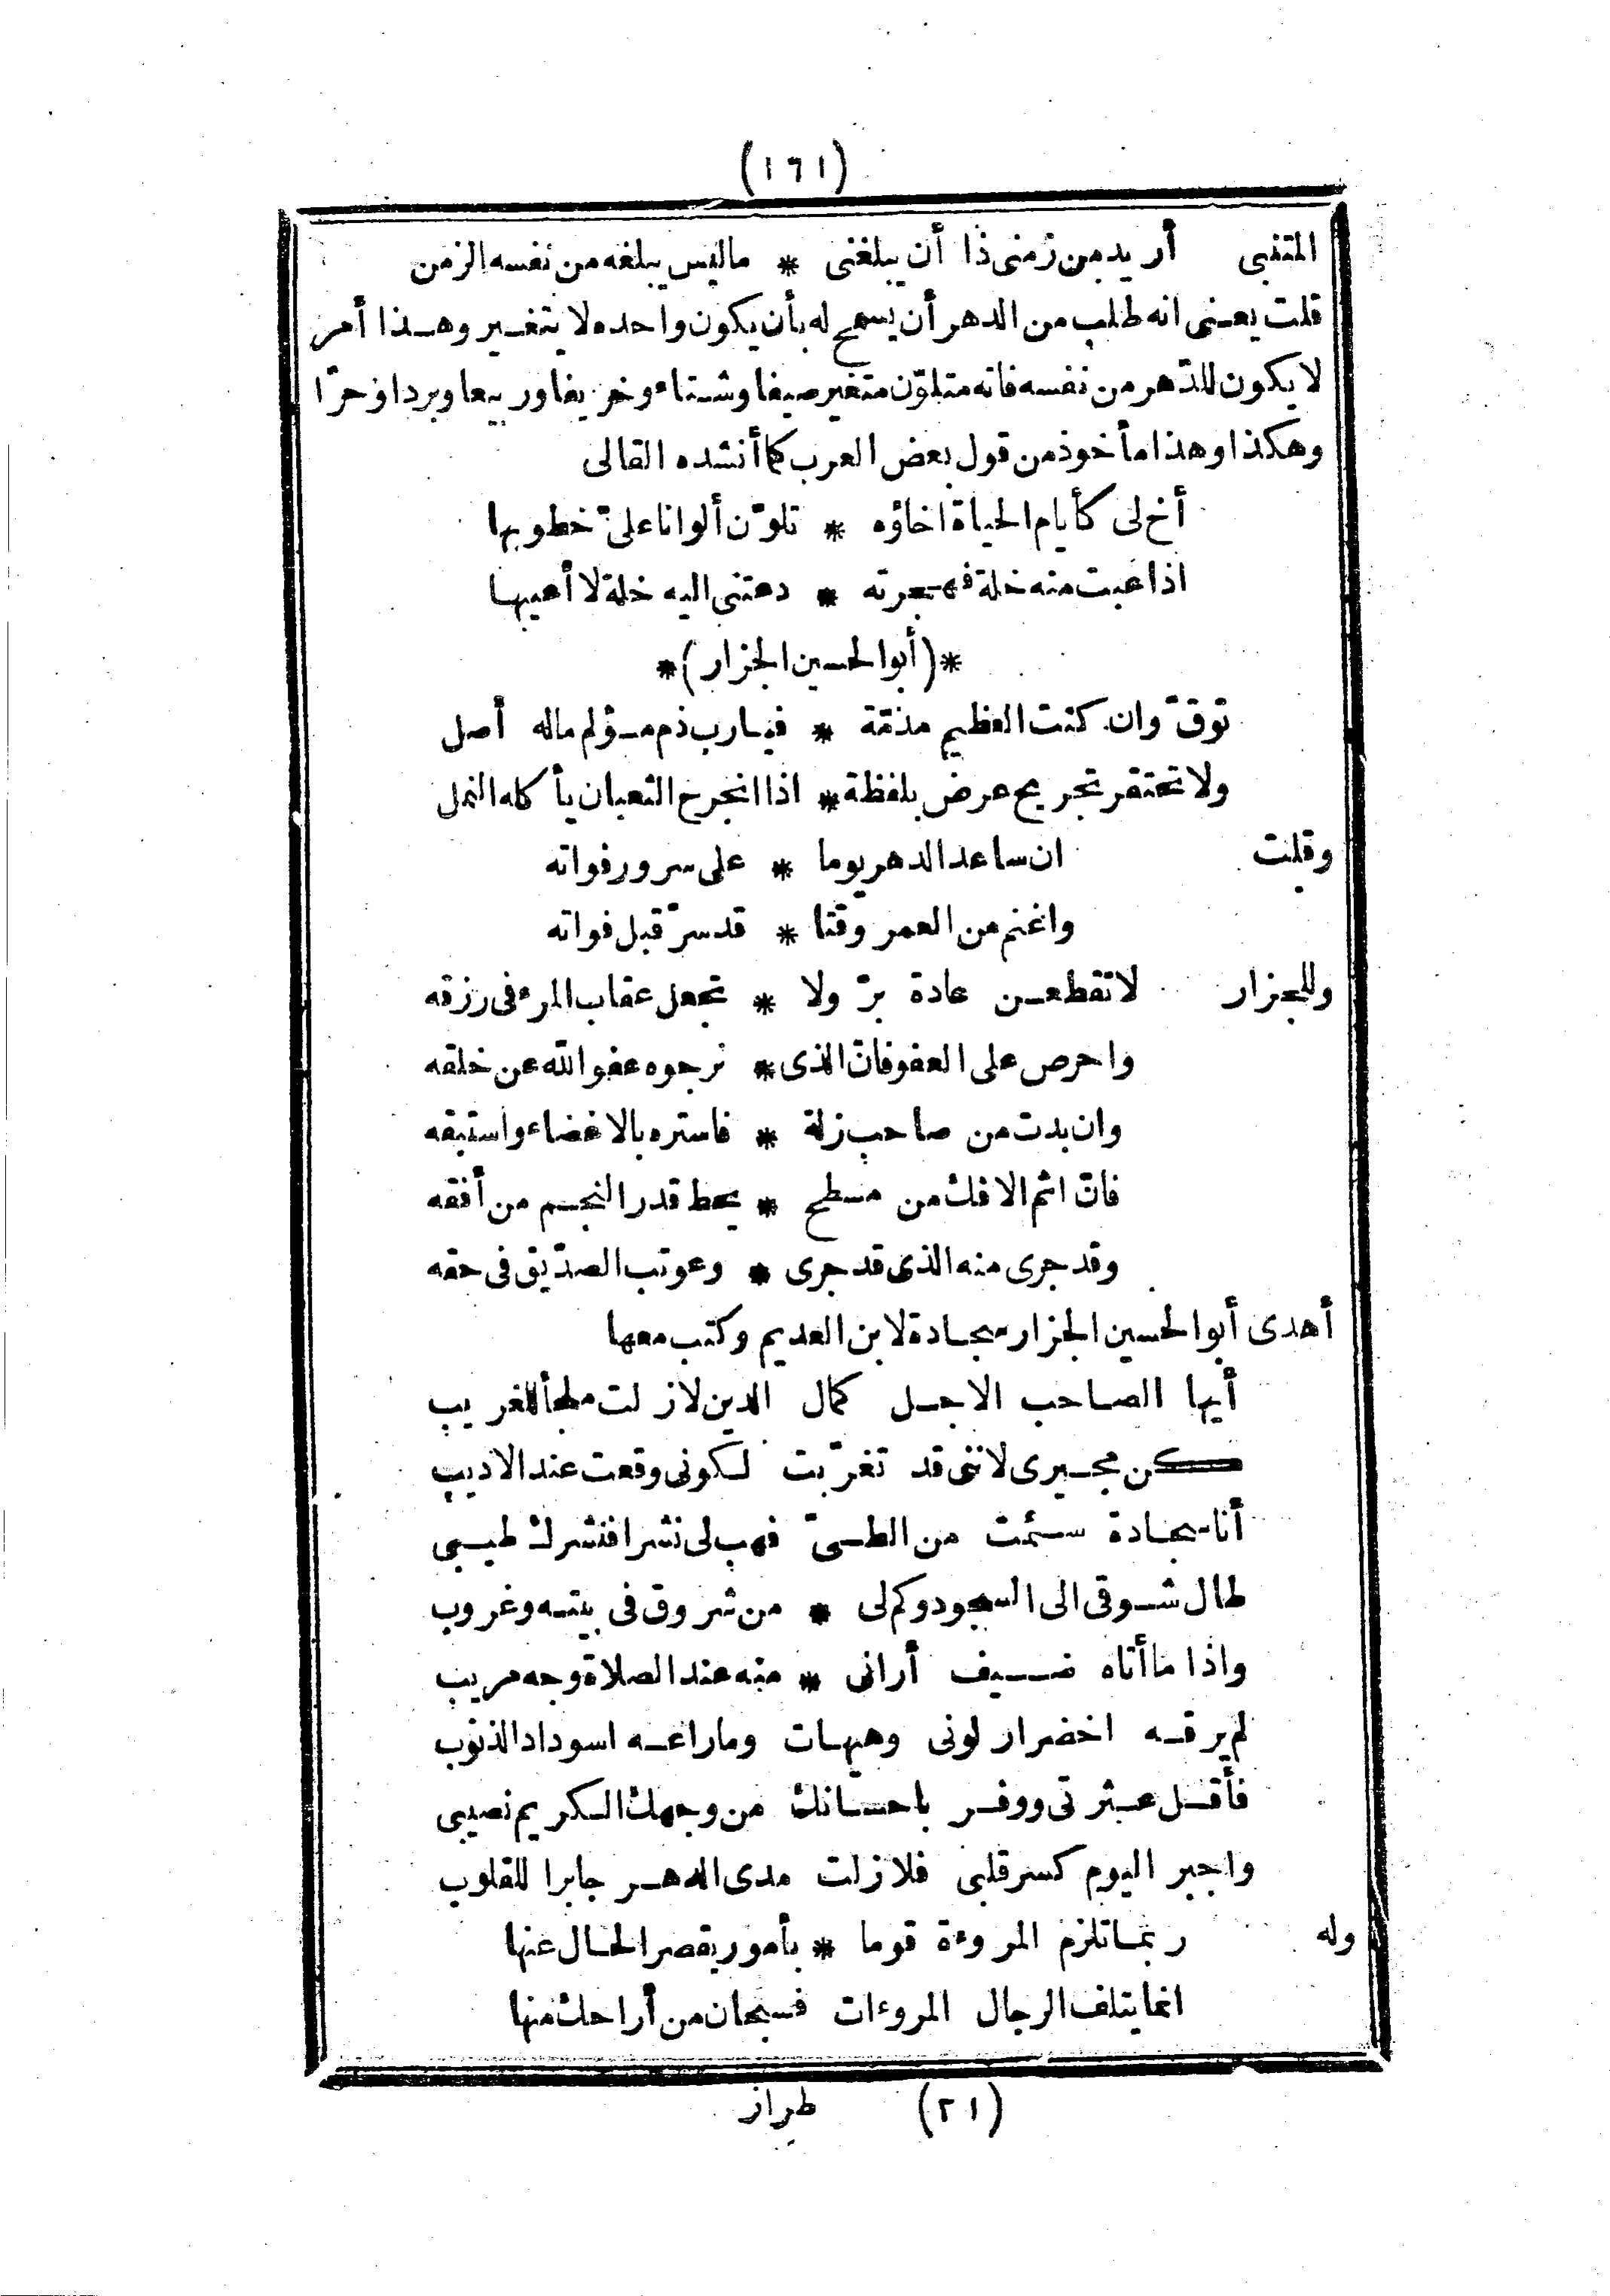 (١٦١)
المتنبي أريد من زمني ذا أن يبلغني * ماليس يبلغه من نفسه الزمن
قلت يعني انه طلب من الدهر أن يسمح له بأن يكون واحده لا يتغير وهذا أمر
لا يكون للدّهر من نفسه فانه متلوّن متغير صيفا وشتاء وخريفا وربيعا وبردا وحرّا
وهكذا وهذا مأخوذ من قول بعض العرب كما أنشده القالى
أخ لى كأيام الحياة اخاؤه * تلوّن ألوانا علىّ خطوبها
اذا عبت منه خلة فهجرته * دعتنى اليه خلة لا أعيبها
*(أبو الحسين الجزار)*
توقّ وان كنت العظيم مذمّة * فيارب ذم مؤلم ماله أصل
ولا تحتقر تجريح عرض بلفظة * اذا انجرح الثعبان يأكله النمل
وقلت ان ساعد الدهر يوما * على سرور فواته
واغنم من العمر وقتا * قد سرّ قبل فواته
وللجزار لا تقطعن عادة برّ ولا * تجعل عقاب المرء فى رزقه
واحرص على العفو فانّ الذى * نرجوه عفو الله عن خلقه
وان بدت من صاحب زلة * فاستره بالاغضاء واستبقه
فانّ اثم الافك من مسطح * يحط قدر النجم من أفقه
وقد جرى منه الذى قد جرى * وعوتب الصدّيق فى حقه
أهدى أبو الحسين الجزار سجادة لابن العديم وكتب معها
أيها الصاحب الاجل كمال الدين لازلت ملجأ للغريب
كن مجيرى لاننى قد تغرّبت لكونى وقعت عند الاديب
أنا سجادة سئمت من الطىّ فهب لى نشرا فنشرك طيبى
طال شوقى الى السجود وكم لى * من شروق فى بيته وغروب
واذا ما أتاه ضيف أرانى * منه عند الصلاة وجه مريب
لم يرقه اخضرار لونى وهيهات وما راعه اسوداد الذنوب
فأقل عثرتى ووفر باحسانك من وجهك الكريم نصيبى
واجبر اليوم كسر قلبى فلا زلت مدى الدهر جابرا للقلوب
وله ربما تلزم المروءة قوما * بأمور يقصر الحال عنها
انما يتلف الرجال المروءات فسبحان من أراحك منها
(٢١) طراز